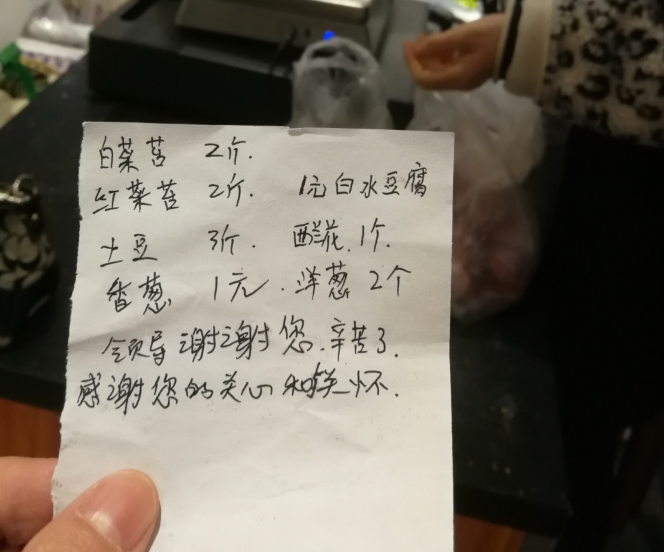 白菜苔 2斤.
红菜苔 2斤. 1元白水豆腐
土豆 3斤. 西兰花.1个.
香葱 1元. 洋葱 2个
领导谢谢您.辛苦了.
感谢您的关心和关怀.